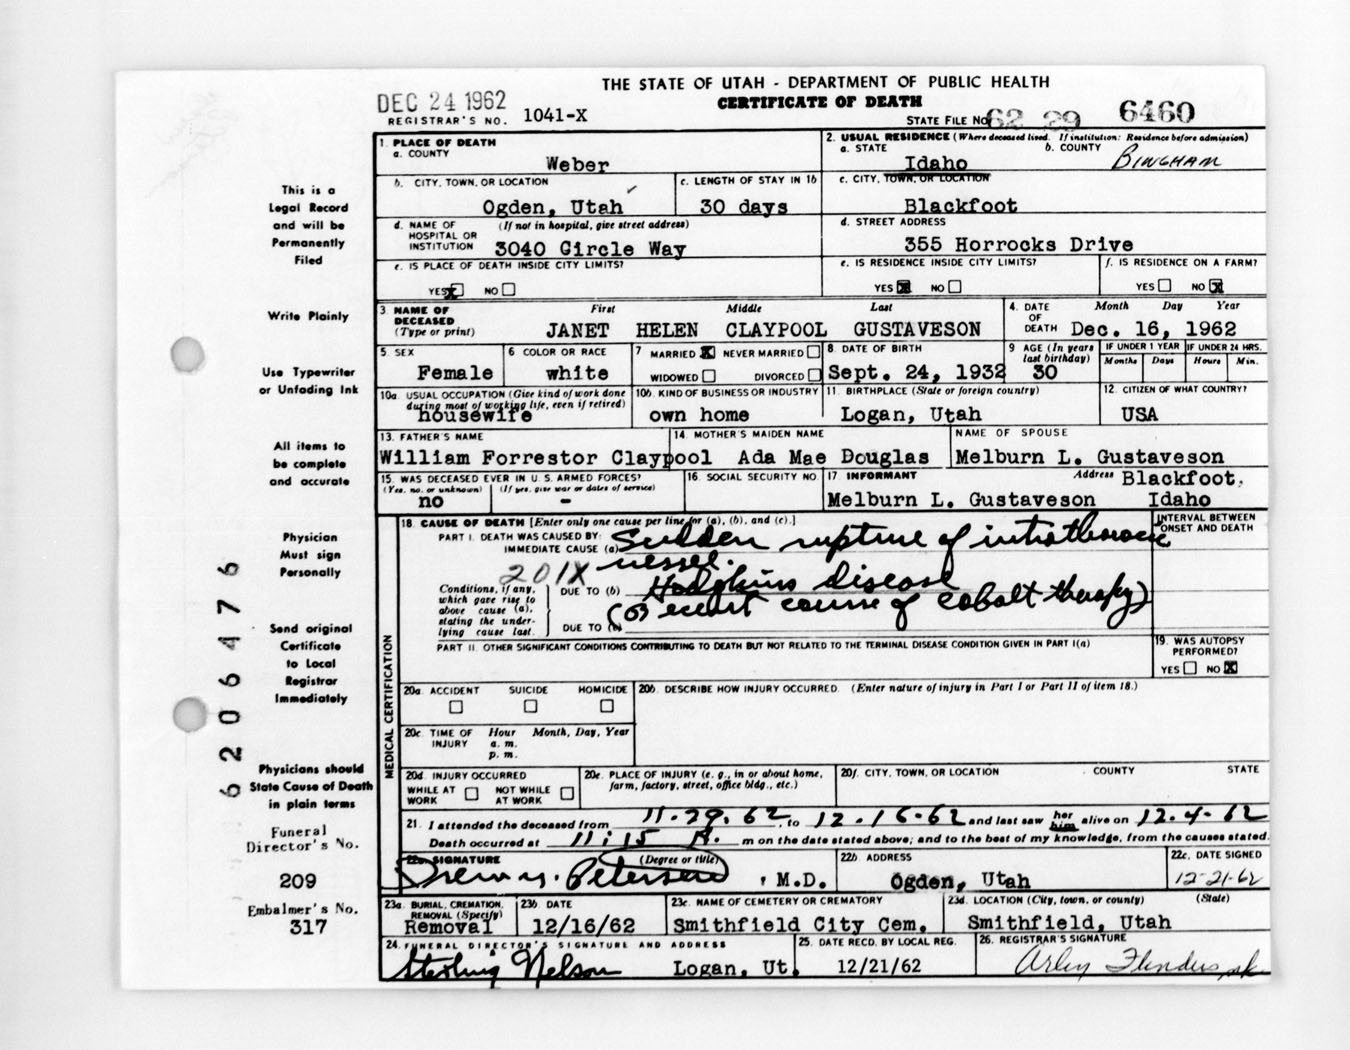 THE STATE OF UTAH - DEPARTMENT OF PUBLIC HEALTH
CERTIFICATE OF DEATH
DEC 24 1962
REGISTRAR'S NO. 1041-X
STATE FILE NO. 62 29 6460
1. PLACE OF DEATH
a. COUNTY
Weber
2. USUAL RESIDENCE (Where deceased lived. If institution: Residence before admission)
a. STATE
Idaho
b. COUNTY
BINGHAM
b. CITY, TOWN, OR LOCATION
Ogden, Utah
c. LENGTH OF STAY IN 1b
30 days
c. CITY, TOWN, OR LOCATION
Blackfoot
d. NAME OF HOSPITAL OR INSTITUTION (If not in hospital, give street address)
3040 Circle Way
d. STREET ADDRESS
355 Horrocks Drive
e. IS PLACE OF DEATH INSIDE CITY LIMITS?
YES X NO
e. IS RESIDENCE INSIDE CITY LIMITS?
YES X NO
f. IS RESIDENCE ON A FARM?
YES NO X
3. NAME OF DECEASED (Type or print)
First Middle Last
JANET HELEN CLAYPOOL GUSTAVESON
4. DATE OF DEATH Month Day Year
Dec. 16, 1962
5. SEX
Female
6 COLOR OR RACE
white
7 MARRIED X NEVER MARRIED
WIDOWED DIVORCED
8. DATE OF BIRTH
Sept. 24, 1932
9 AGE (In years last birthday)
30
IF UNDER 1 YEAR
Months Days
IF UNDER 24 HRS.
Hours Min.
10a. USUAL OCCUPATION (Give kind of work done during most of working life, even if retired)
housewife
10b. KIND OF BUSINESS OR INDUSTRY
own home
11. BIRTHPLACE (State or foreign country)
Logan, Utah
12. CITIZEN OF WHAT COUNTRY?
USA
13. FATHER'S NAME
William Forrestor Claypool
14. MOTHER'S MAIDEN NAME
Ada Mae Douglas
NAME OF SPOUSE
Melburn L. Gustaveson
15. WAS DECEASED EVER IN U.S. ARMED FORCES?
(Yes, no, or unknown) (If yes, give war or dates of service)
no -
16. SOCIAL SECURITY NO.
17. INFORMANT Address
Melburn L. Gustaveson Blackfoot, Idaho
18. CAUSE OF DEATH [Enter only one cause per line for (a), (b), and (c).]
INTERVAL BETWEEN ONSET AND DEATH
PART I. DEATH WAS CAUSED BY:
IMMEDIATE CAUSE (a) Sudden rupture of intrathoracic
vessel.
201X
Conditions, if any, which gave rise to above cause (a), stating the underlying cause last.
DUE TO (b) Hodgkins disease
DUE TO (c) (recent course of cobalt therapy)
PART II. OTHER SIGNIFICANT CONDITIONS CONTRIBUTING TO DEATH BUT NOT RELATED TO THE TERMINAL DISEASE CONDITION GIVEN IN PART I(a)
19. WAS AUTOPSY PERFORMED?
YES NO X
MEDICAL CERTIFICATION
20a. ACCIDENT SUICIDE HOMICIDE
20b. DESCRIBE HOW INJURY OCCURRED. (Enter nature of injury in Part I or Part II of item 18.)
20c. TIME OF INJURY Hour Month, Day, Year
a. m.
p. m.
20d. INJURY OCCURRED
WHILE AT WORK NOT WHILE AT WORK
20e. PLACE OF INJURY (e. g., in or about home, farm, factory, street, office bldg., etc.)
20f. CITY, TOWN, OR LOCATION COUNTY STATE
21. I attended the deceased from 11-29-62, to 12-16-62 and last saw her him alive on 12-4-62
Death occurred at 11:15 A. m on the date stated above; and to the best of my knowledge, from the causes stated.
22a. SIGNATURE (Degree or title)
Drew M. Petersen, M.D.
22b. ADDRESS
Ogden, Utah
22c. DATE SIGNED
12-21-62
23a. BURIAL, CREMATION, REMOVAL (Specify)
Removal
23b. DATE
12/16/62
23c. NAME OF CEMETERY OR CREMATORY
Smithfield City Cem.
23d. LOCATION (City, town, or county) (State)
Smithfield, Utah
24. FUNERAL DIRECTOR'S SIGNATURE AND ADDRESS
Sterling Nelson Logan, Ut.
25. DATE RECD. BY LOCAL REG.
12/21/62
26. REGISTRAR'S SIGNATURE
Arley Flinders
This is a
Legal Record
and will be
Permanently
Filed
Write Plainly
Use Typewriter
or Unfading Ink
All items to
be complete
and accurate
Physician
Must sign
Personally
Send original
Certificate
to Local
Registrar
Immediately
Physicians should
State Cause of Death
in plain terms
Funeral
Director's No.
209
Embalmer's No.
317
6206476